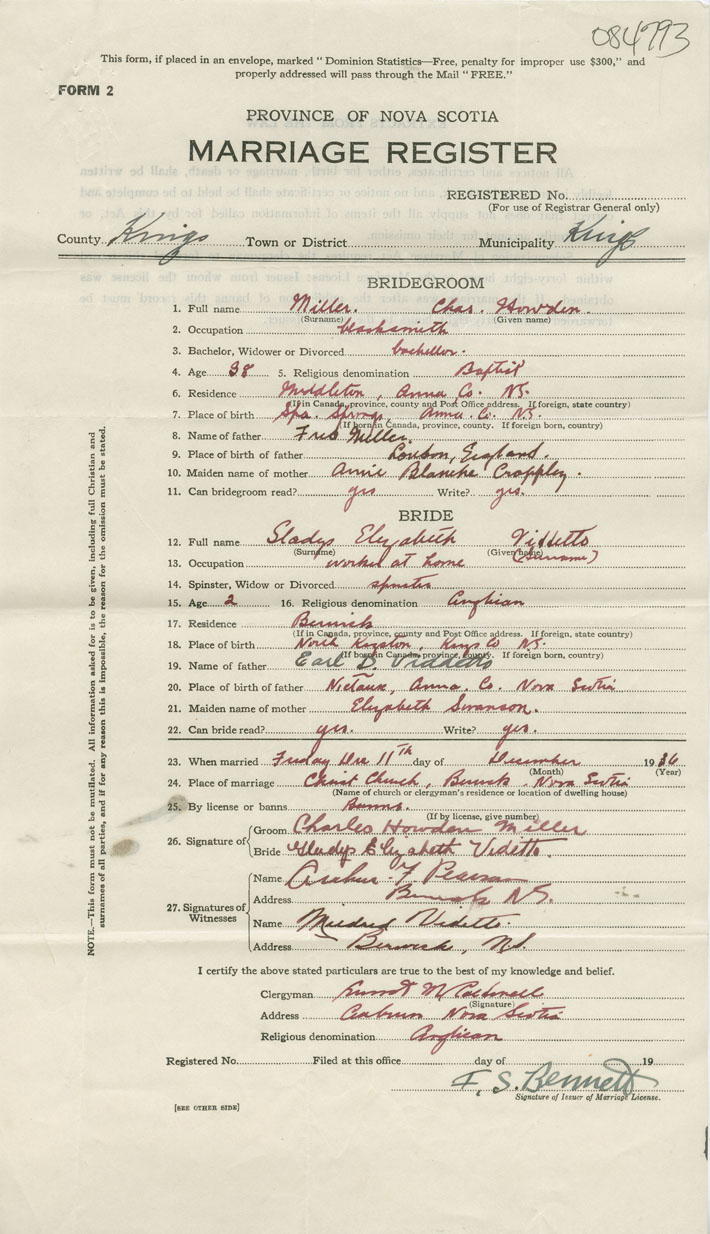 084793
This form, if placed in an envelope, marked "Dominion Statistics—Free, penalty for improper use $300," and
properly addressed will pass through the Mail "FREE."
FORM 2
PROVINCE OF NOVA SCOTIA
MARRIAGE REGISTER
REGISTERED No.
(For use of Registrar General only)
County Kings Town or District Municipality Kings
BRIDEGROOM
1. Full name Miller. Chas. Howden.
(Surname) (Given name)
2. Occupation blacksmith
3. Bachelor, Widower or Divorced bachellor.
4. Age 38 5. Religious denomination Baptist
6. Residence Middleton, Anna Co. N.S.
(If in Canada, province, county and Post Office address. If foreign, state country)
7. Place of birth Spa. Springs Anna. Co. N.S.
(If born in Canada, province, county. If foreign born, country)
8. Name of father Fred Miller.
9. Place of birth of father London, England.
10. Maiden name of mother Annie Blanche Croppley.
11. Can bridegroom read? yes Write? yes.
BRIDE
12. Full name Gladys Elizabeth Videtto
(Surname) (Given name) (Surname)
13. Occupation worked at home
14. Spinster, Widow or Divorced spinster
15. Age 2 16. Religious denomination Anglican
17. Residence Berwick
(If in Canada, province, county and Post Office address. If foreign, state country)
18. Place of birth North Kingston, Kings Co N.S.
(If born in Canada, province, county. If foreign born, country)
19. Name of father Earl D. Viddetto
20. Place of birth of father Nictaux, Anna. Co. Nova Scotia
21. Maiden name of mother Elizabeth Swanson.
22. Can bride read? yes. Write? yes.
23. When married Friday Dec 11th day of December 1936
(Month) (Year)
24. Place of marriage Christ Church, Berwick. Nova Scotia
(Name of church or clergyman's residence or location of dwelling house)
25. By license or banns Banns.
(If by license, give number)
26. Signature of Groom Charles Howden Miller
Bride Gladys Elizabeth Videtto.
27. Signatures of Witnesses Name Arthur F Pearson
Address Berwick N.S.
Name Mildred Videtto.
Address Berwick, N.S.
I certify the above stated particulars are true to the best of my knowledge and belief.
Clergyman Ernest M Caldwell
(Signature)
Address Auburn Nova Scotia
Religious denomination Anglican
Registered No. Filed at this office day of 19
F. S. Bennett
Signature of Issuer of Marriage License.
[SEE OTHER SIDE]
NOTE.—This form must not be mutilated. All information asked for is to be given, including full Christian and
surnames of all parties, and if for any reason this is impossible, the reason for the omission must be stated.